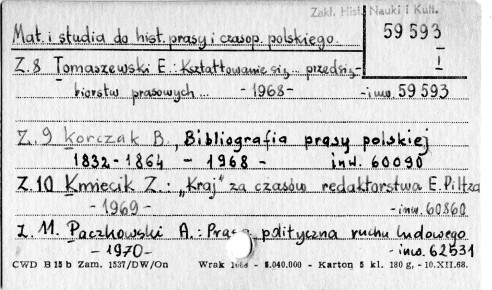 Zakł. Hist. Nauki i Kult.
59 593
I
Mat. i studia do hist. prasy i czasop. polskiego.
Z. 8 Tomaszewski E.: Kształtowanie się... przedsię-
biorstw prasowych... - 1968 - - inw. 59 593
Z. 9 Korczak B., Bibliografia prasy polskiej
1832-1864 - 1968 - inw. 60090
Z. 10 Kmiecik Z.: „Kraj" za czasów redaktorstwa E. Piltza
- 1969 - - inw. 60860
Z. 11. Paczkowski A.: Prasa polityczna ruchu ludowego
- 1970 - - inw. 62531
CWD B 15 b Zam. 1537/DW/On Wrak 1968 - 5.040.000 - Karton 5 kl. 180 g, - 10.XII.68.